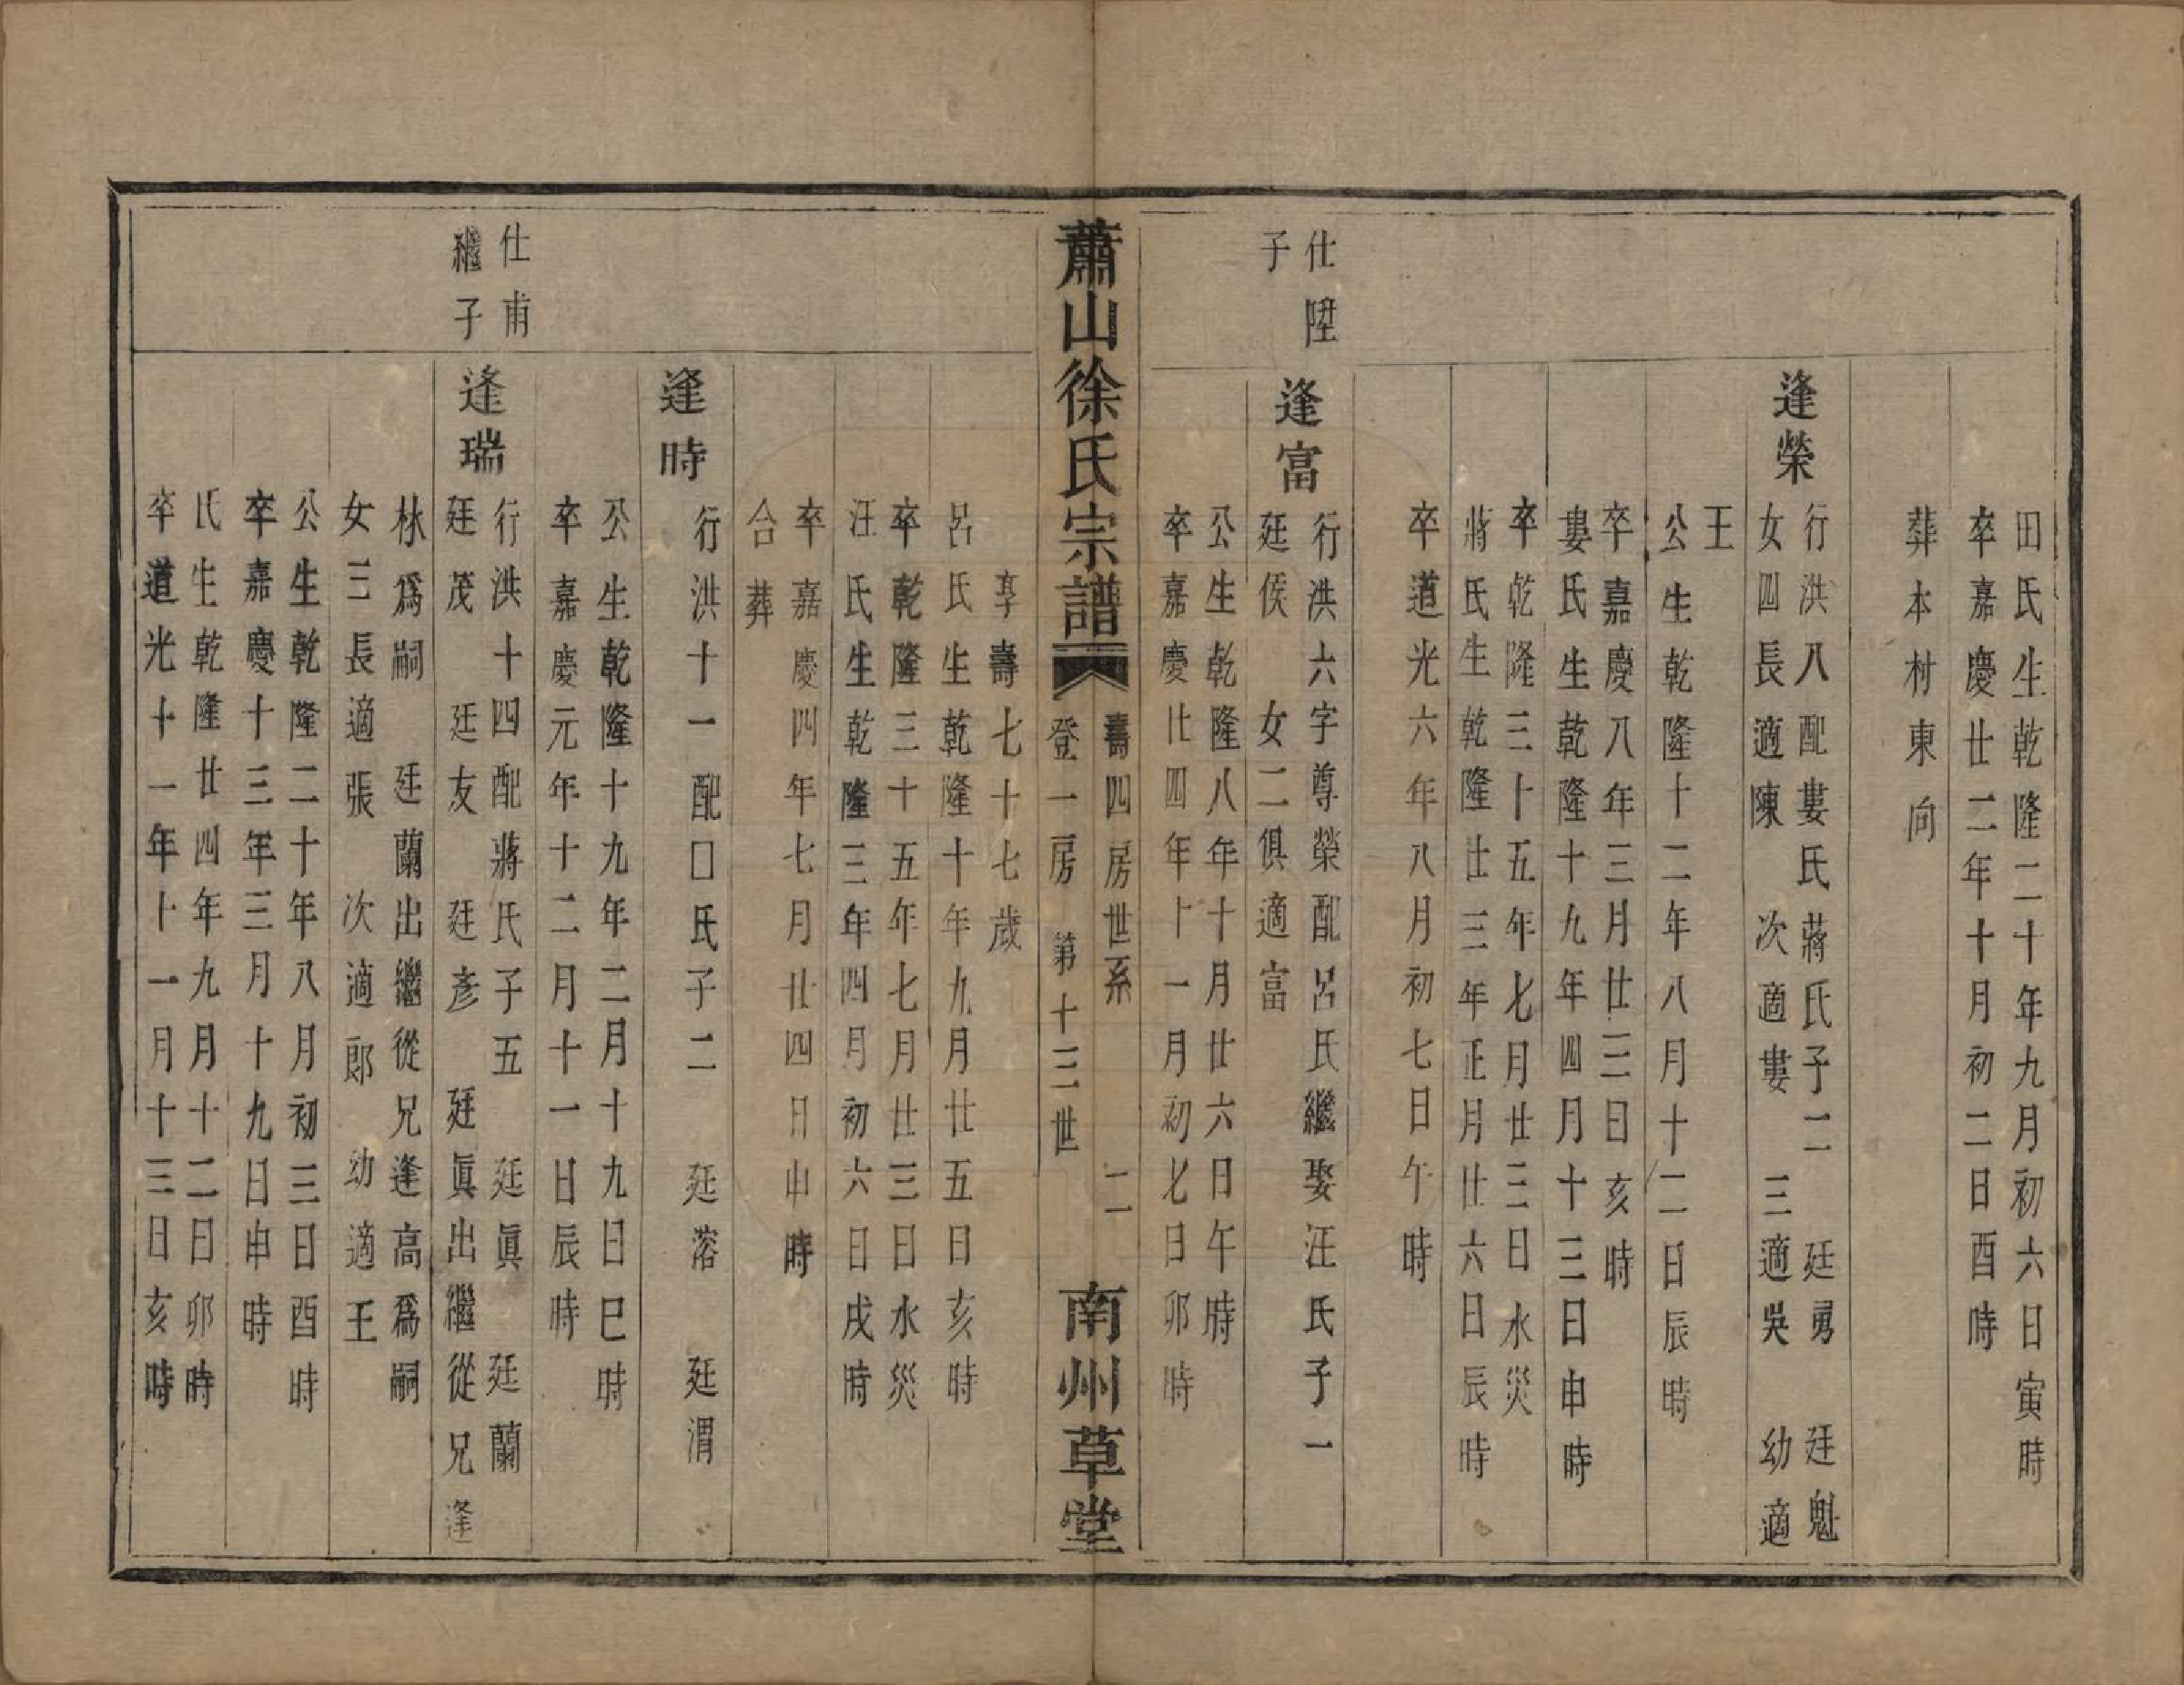 田氏生乾隆二十年九月初六日寅時
卒嘉慶廿二年十月初二日酉時
葬本村東向
逢榮
行洪八配婁氏蔣氏子二 廷勇 廷魁
女四長適陳 次適婁 三適吳 幼適
王
公生乾隆十二年八月十二日辰時
卒嘉慶八年三月廿三日亥時
婁氏生乾隆十九年四月十三日申時
卒乾隆三十五年七月廿三日水災
蔣氏生乾隆廿三年正月廿六日辰時
卒道光六年八月初七日午時
仕陞
子
逢富
行洪六字尊榮配呂氏繼娶汪氏子一
廷侯 女二俱適富
公生乾隆八年十月廿六日午時
卒嘉慶廿四年十一月初七日卯時
蕭山徐氏宗譜
壽四房世系 二
登一房 第十三世
南州草堂
享壽七十七歲
呂氏生乾隆十年九月廿五日亥時
卒乾隆三十五年七月廿三日水災
汪氏生乾隆三年四月初六日戌時
卒嘉慶四年七月廿四日申時
合葬
逢時
行洪十一配口氏子二 廷溶 廷渭
公生乾隆十九年二月十九日巳時
卒嘉慶元年十二月十一日辰時
仕甫
繼子
逢瑞
行洪十四配蔣氏子五 廷眞 廷蘭
廷茂 廷友 廷彥 廷眞出繼從兄逢
林爲嗣 廷蘭出繼從兄逢高爲嗣
女三長適張 次適郎 幼適王
公生乾隆二十年八月初三日酉時
卒嘉慶十三年三月十九日申時
氏生乾隆廿四年九月十二日卯時
卒道光十一年十一月十三日亥時